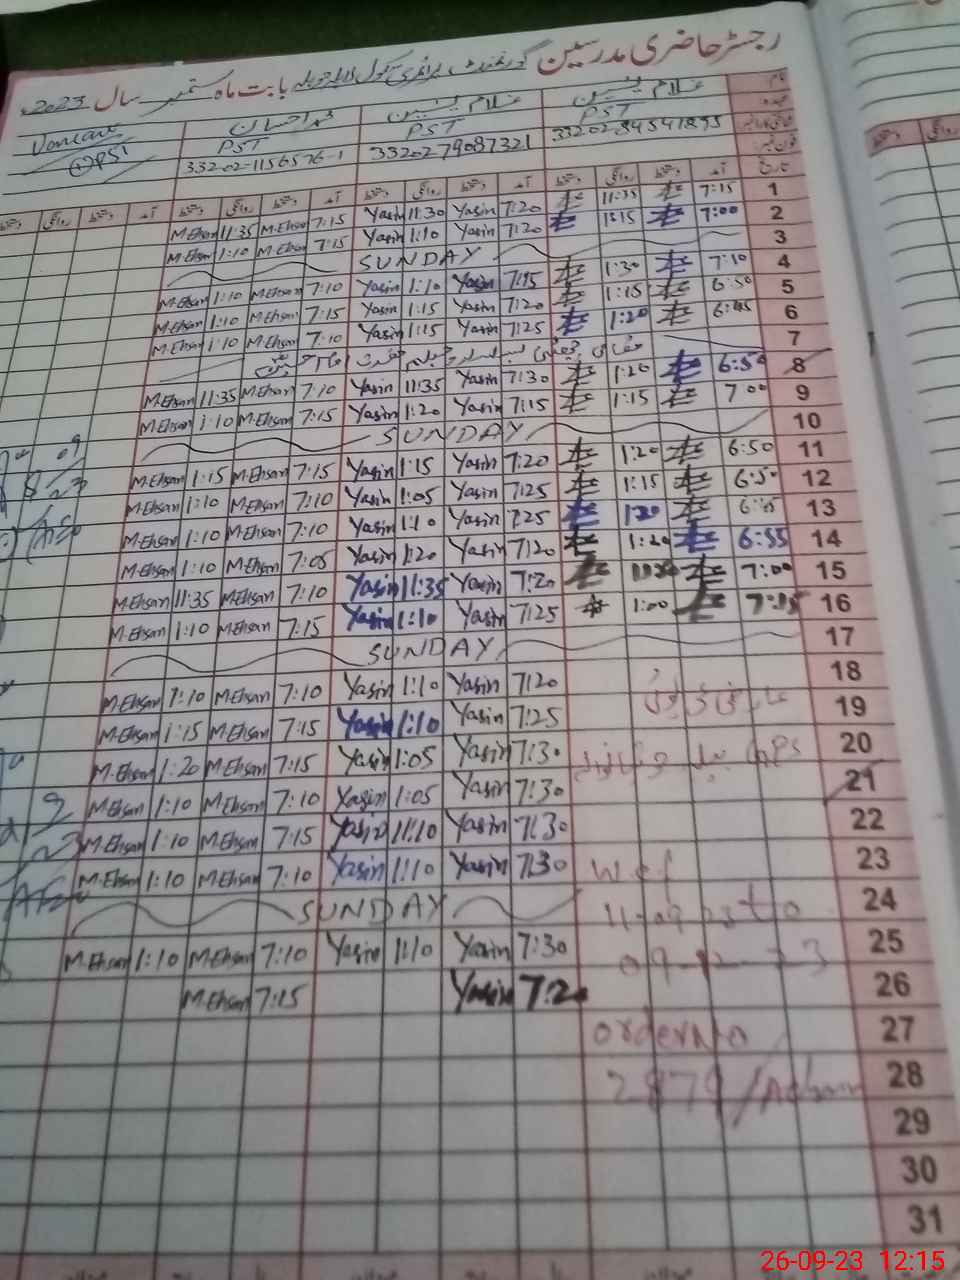 رجسٹر حاضری مدرسین گورنمنٹ پرائمری سکول بابت ماہ ستمبر سال 2023ء
نام غلام یٰسین غلام یٰسین محمد احسان Vancant
عہدہ PST PST PST PST
33202-1156576-1 3320279087321
تاریخ آمد دستخط روانگی دستخط آمد دستخط روانگی دستخط آمد دستخط روانگی دستخط آمد دستخط روانگی دستخط
1 7:15 11:35 7:20 Yasin 11:30 Yasin 7:15 M.Ehsan 11:35 M.Ehsan
2 7:00 1:15 7:20 Yasin 1:10 Yasin 7:15 M.Ehsan 1:10 M.Ehsan
3 SUNDAY
4 7:10 1:30 7:15 Yasin 1:10 Yasin 7:10 M.Ehsan 1:10 M.Ehsan
5 6:50 1:15 7:20 Yasin 1:15 Yasin 7:15 M.Ehsan 1:10 M.Ehsan
6 6:45 1:20 7:25 Yasin 1:15 Yasin 7:10 M.Ehsan 1:10 M.Ehsan
7 مقامی چھٹی بسلسلہ چہلم حضرت امام حسین
8 6:50 1:20 7:30 Yasin 11:35 Yasin 7:10 M.Ehsan 11:35 M.Ehsan
9 7:00 1:15 7:15 Yasin 1:20 Yasin 7:15 M.Ehsan 1:10 M.Ehsan
10 SUNDAY
11 6:50 1:20 7:20 Yasin 1:15 Yasin 7:15 M.Ehsan 1:15 M.Ehsan
12 6:50 1:15 7:25 Yasin 1:05 Yasin 7:10 M.Ehsan 1:10 M.Ehsan
13 6:45 1:20 7:25 Yasin 1:10 Yasin 7:10 M.Ehsan 1:10 M.Ehsan
14 6:55 1:20 7:20 Yasin 1:20 Yasin 7:05 M.Ehsan 1:10 M.Ehsan
15 7:00 7:20 Yasin 11:35 Yasin 7:10 M.Ehsan 11:35 M.Ehsan
16 7:15 1:00 7:25 Yasin 1:10 Yasin 7:15 M.Ehsan 1:10 M.Ehsan
17 SUNDAY
18 عارضی ڈیوٹی 7:20 Yasin 1:10 Yasin 7:10 M.Ehsan 1:10 M.Ehsan
19 7:25 Yasin 1:10 Yasin 7:15 M.Ehsan 1:15 M.Ehsan
20 GPS 7:30 Yasin 1:05 Yasin 7:15 M.Ehsan 1:20 M.Ehsan
21 7:30 Yasin 1:05 Yasin 7:10 M.Ehsan 1:10 M.Ehsan
22 7:30 Yasin 11:10 Yasin 7:15 M.Ehsan 1:10 M.Ehsan
23 w.e.f 7:30 Yasin 1:10 Yasin 7:10 M.Ehsan 1:10 M.Ehsan
24 11-09-23 to SUNDAY
25 09-12-23 7:30 Yasin 1:10 Yasin 7:10 M.Ehsan 1:10 M.Ehsan
26 7:20 Yasin 7:15 M.Ehsan
27 order No
28 2879/Admn
29
30
31
26-09-23 12:15